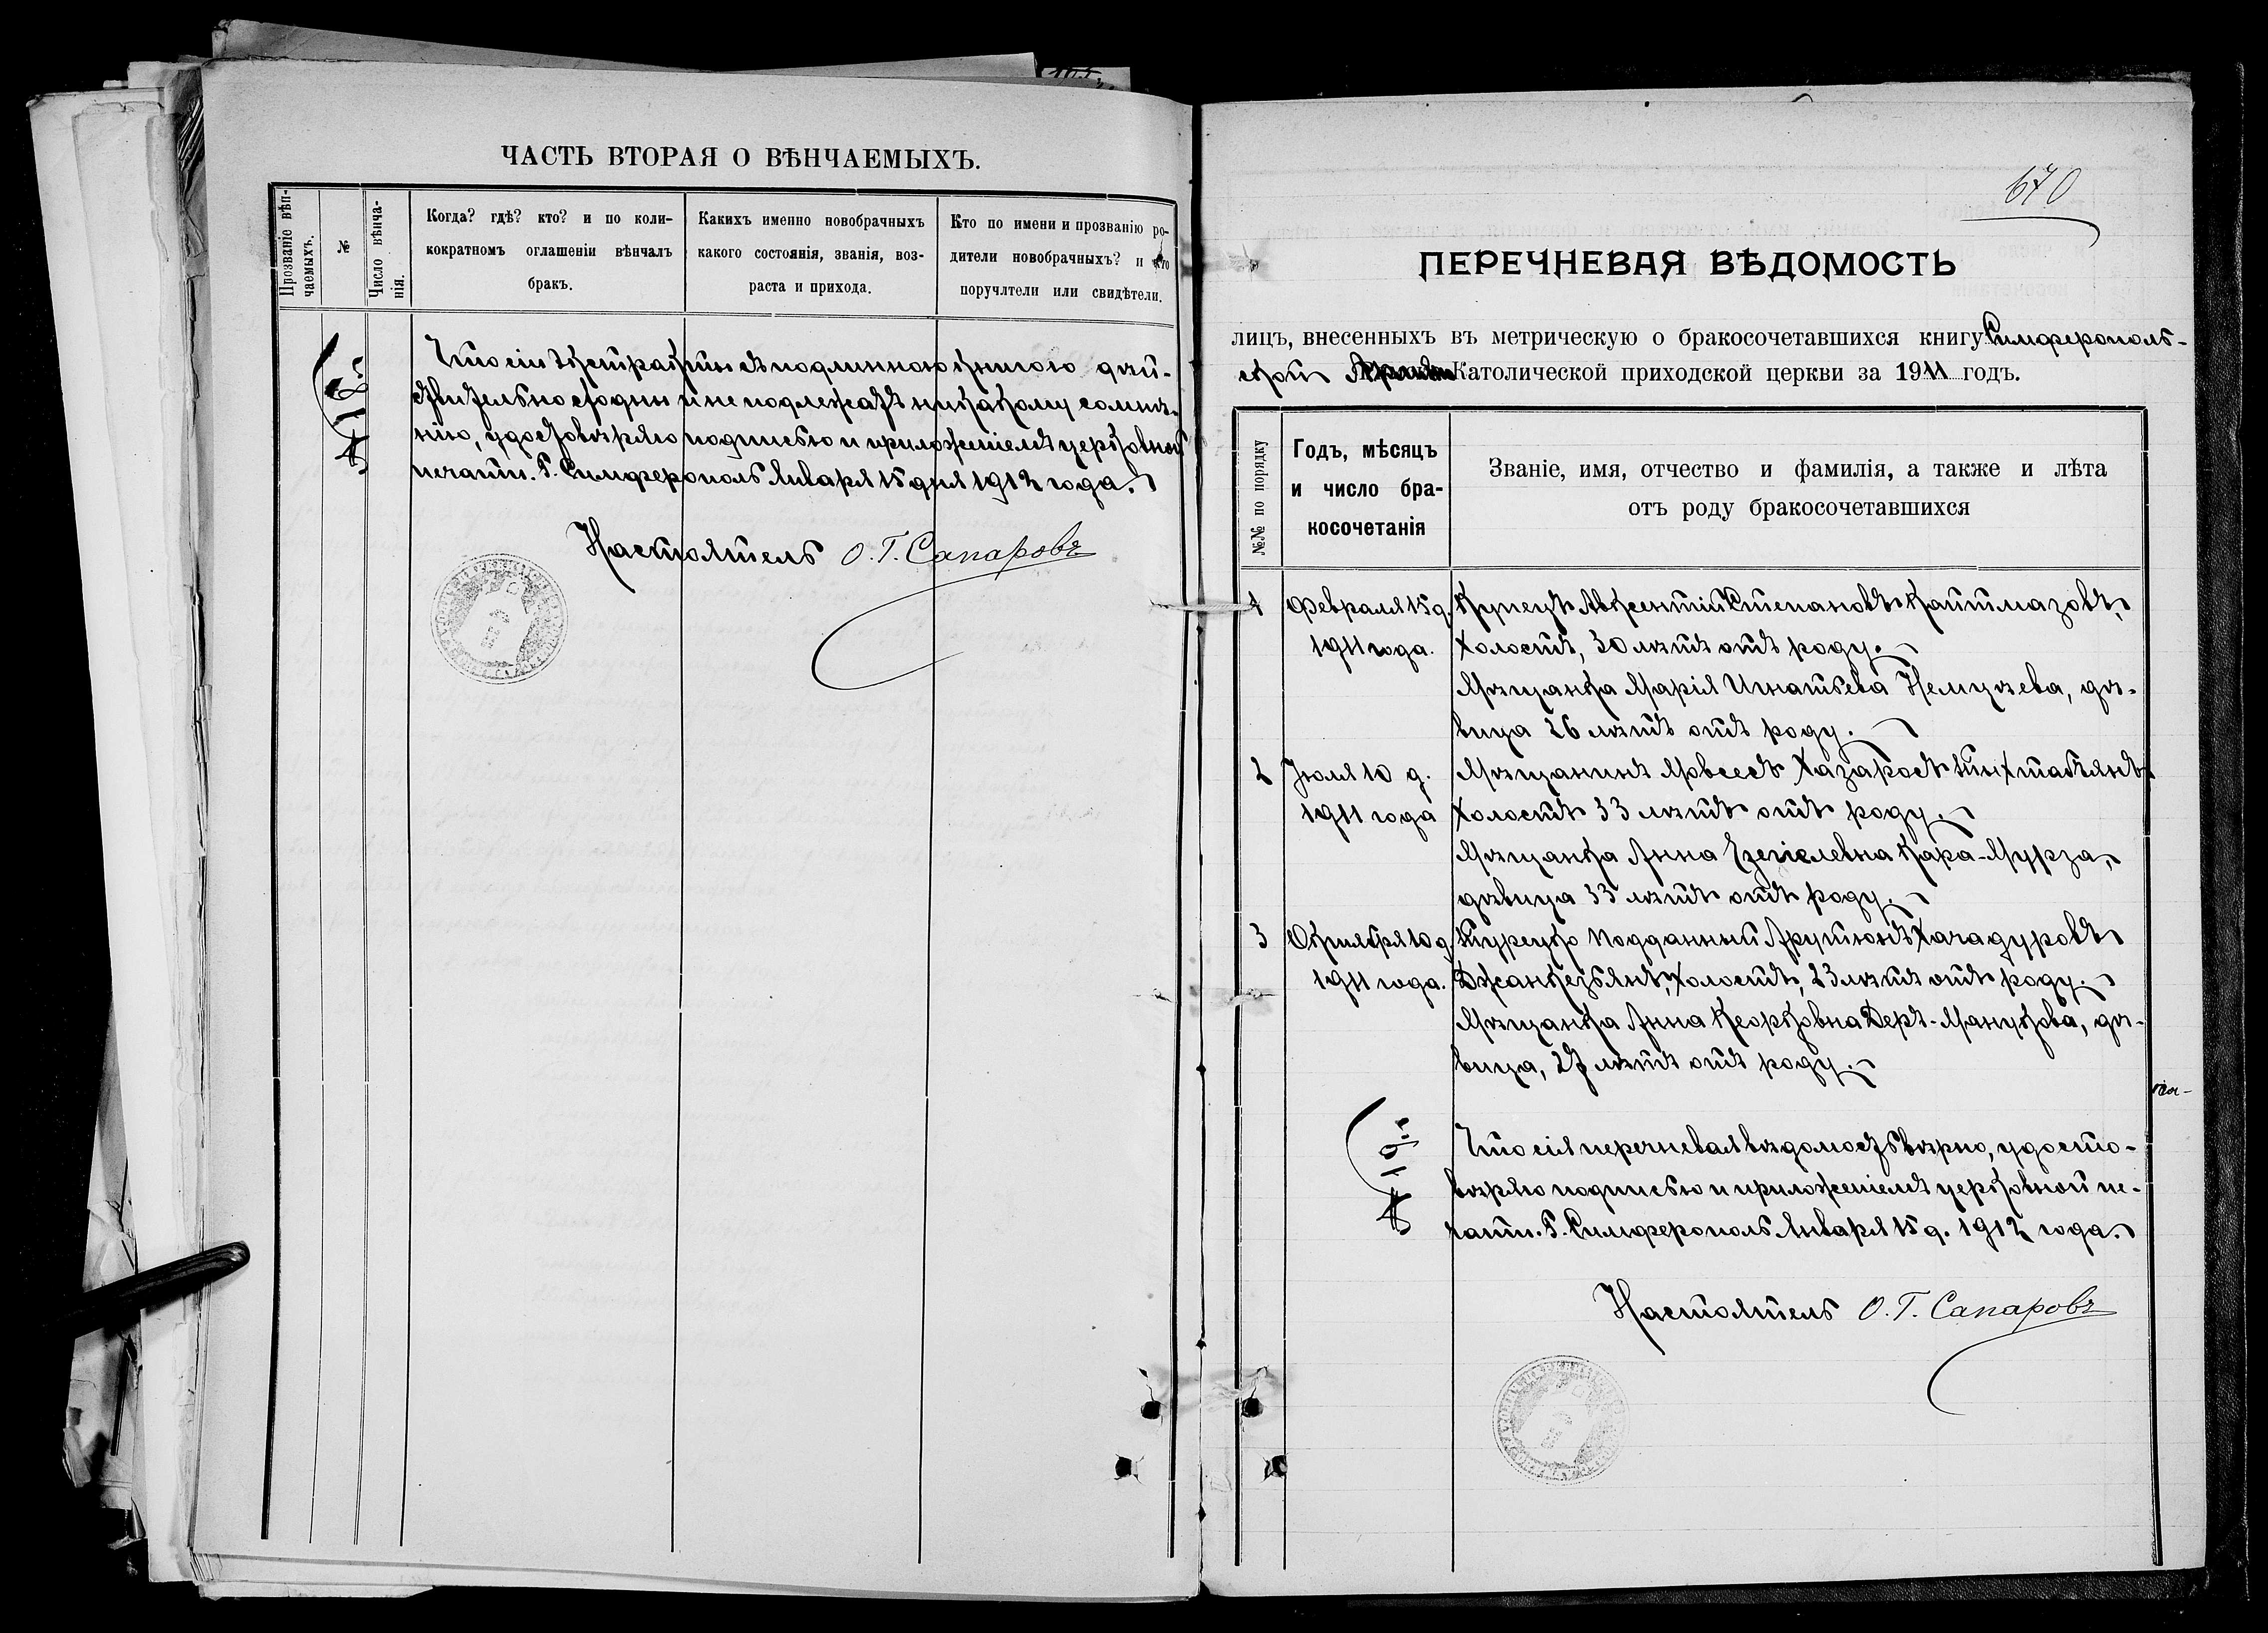 ЧАСТЬ ВТОРАЯ О ВѢНЧАЕМЫХЪ.
Прозваніе вѣн-
чаемыхъ.
№
Число вѣнча-
нія.
Когда? гдѣ? кто? и по коли-
кократномъ оглашеніи вѣнчалъ
бракъ.
Какихъ именно новобрачныхъ
какого состоянія, званія, воз-
раста и прихода.
Кто по имени и прозванію ро-
дители новобрачныхъ? и кто
поручлтели или свидѣтели.
Что сіи экстракты съ подлинною книгою дѣй-
ствительно сходны и не подлежатъ никакому сомнѣ-
нію, удостовѣряю подписью и приложеніемъ церковной
печати. Г. Симферополь Января 15 дня 1912 года.
Настоятель О. Г. Сапаровъ
670
ПЕРЕЧНЕВАЯ ВѢДОМОСТЬ
лицъ, внесенныхъ въ метрическую о бракосочетавшихся книгу Симферополь-
ской Католической приходской церкви за 1911 годъ.
№№ по порядку
Годъ, мѣсяцъ
и число бра-
косочетанія
Званіе, имя, отчество и фамилія, а также и лѣта
отъ роду бракосочетавшихся
1 Февраля 15 д. Купецъ Авксентій Степановъ Кайтмазовъ,
1911 года. холостъ, 30 лѣтъ отъ роду.
Мѣщанка Марія Игнатьева Немцѣева, дѣ-
вица 26 лѣтъ отъ роду.
2 Іюля 10 д. Мѣщанинъ Мовсесъ Хазаросъ
1911 года холостъ 33 лѣтъ отъ роду.
Мѣщанка Анна Езекіелевна Кара-Мурза,
дѣвица 33 лѣтъ отъ роду.
3 Октября 10 д. Турецко подданный Арутюнъ Хачадуровъ
1911 года. Джанкезьянъ, холостъ, 23 лѣтъ отъ роду.
Мѣщанка Анна Кеорковна Деръ-Манукова, дѣ-
вица, 27 лѣтъ отъ роду.
Что сія перечневая вѣдомость вѣрно, удосто-
вѣряю подписью и приложеніемъ церковной пе-
чати. Г. Симферополь Января 15 д. 1912 года.
Настоятель О. Г. Сапаровъ